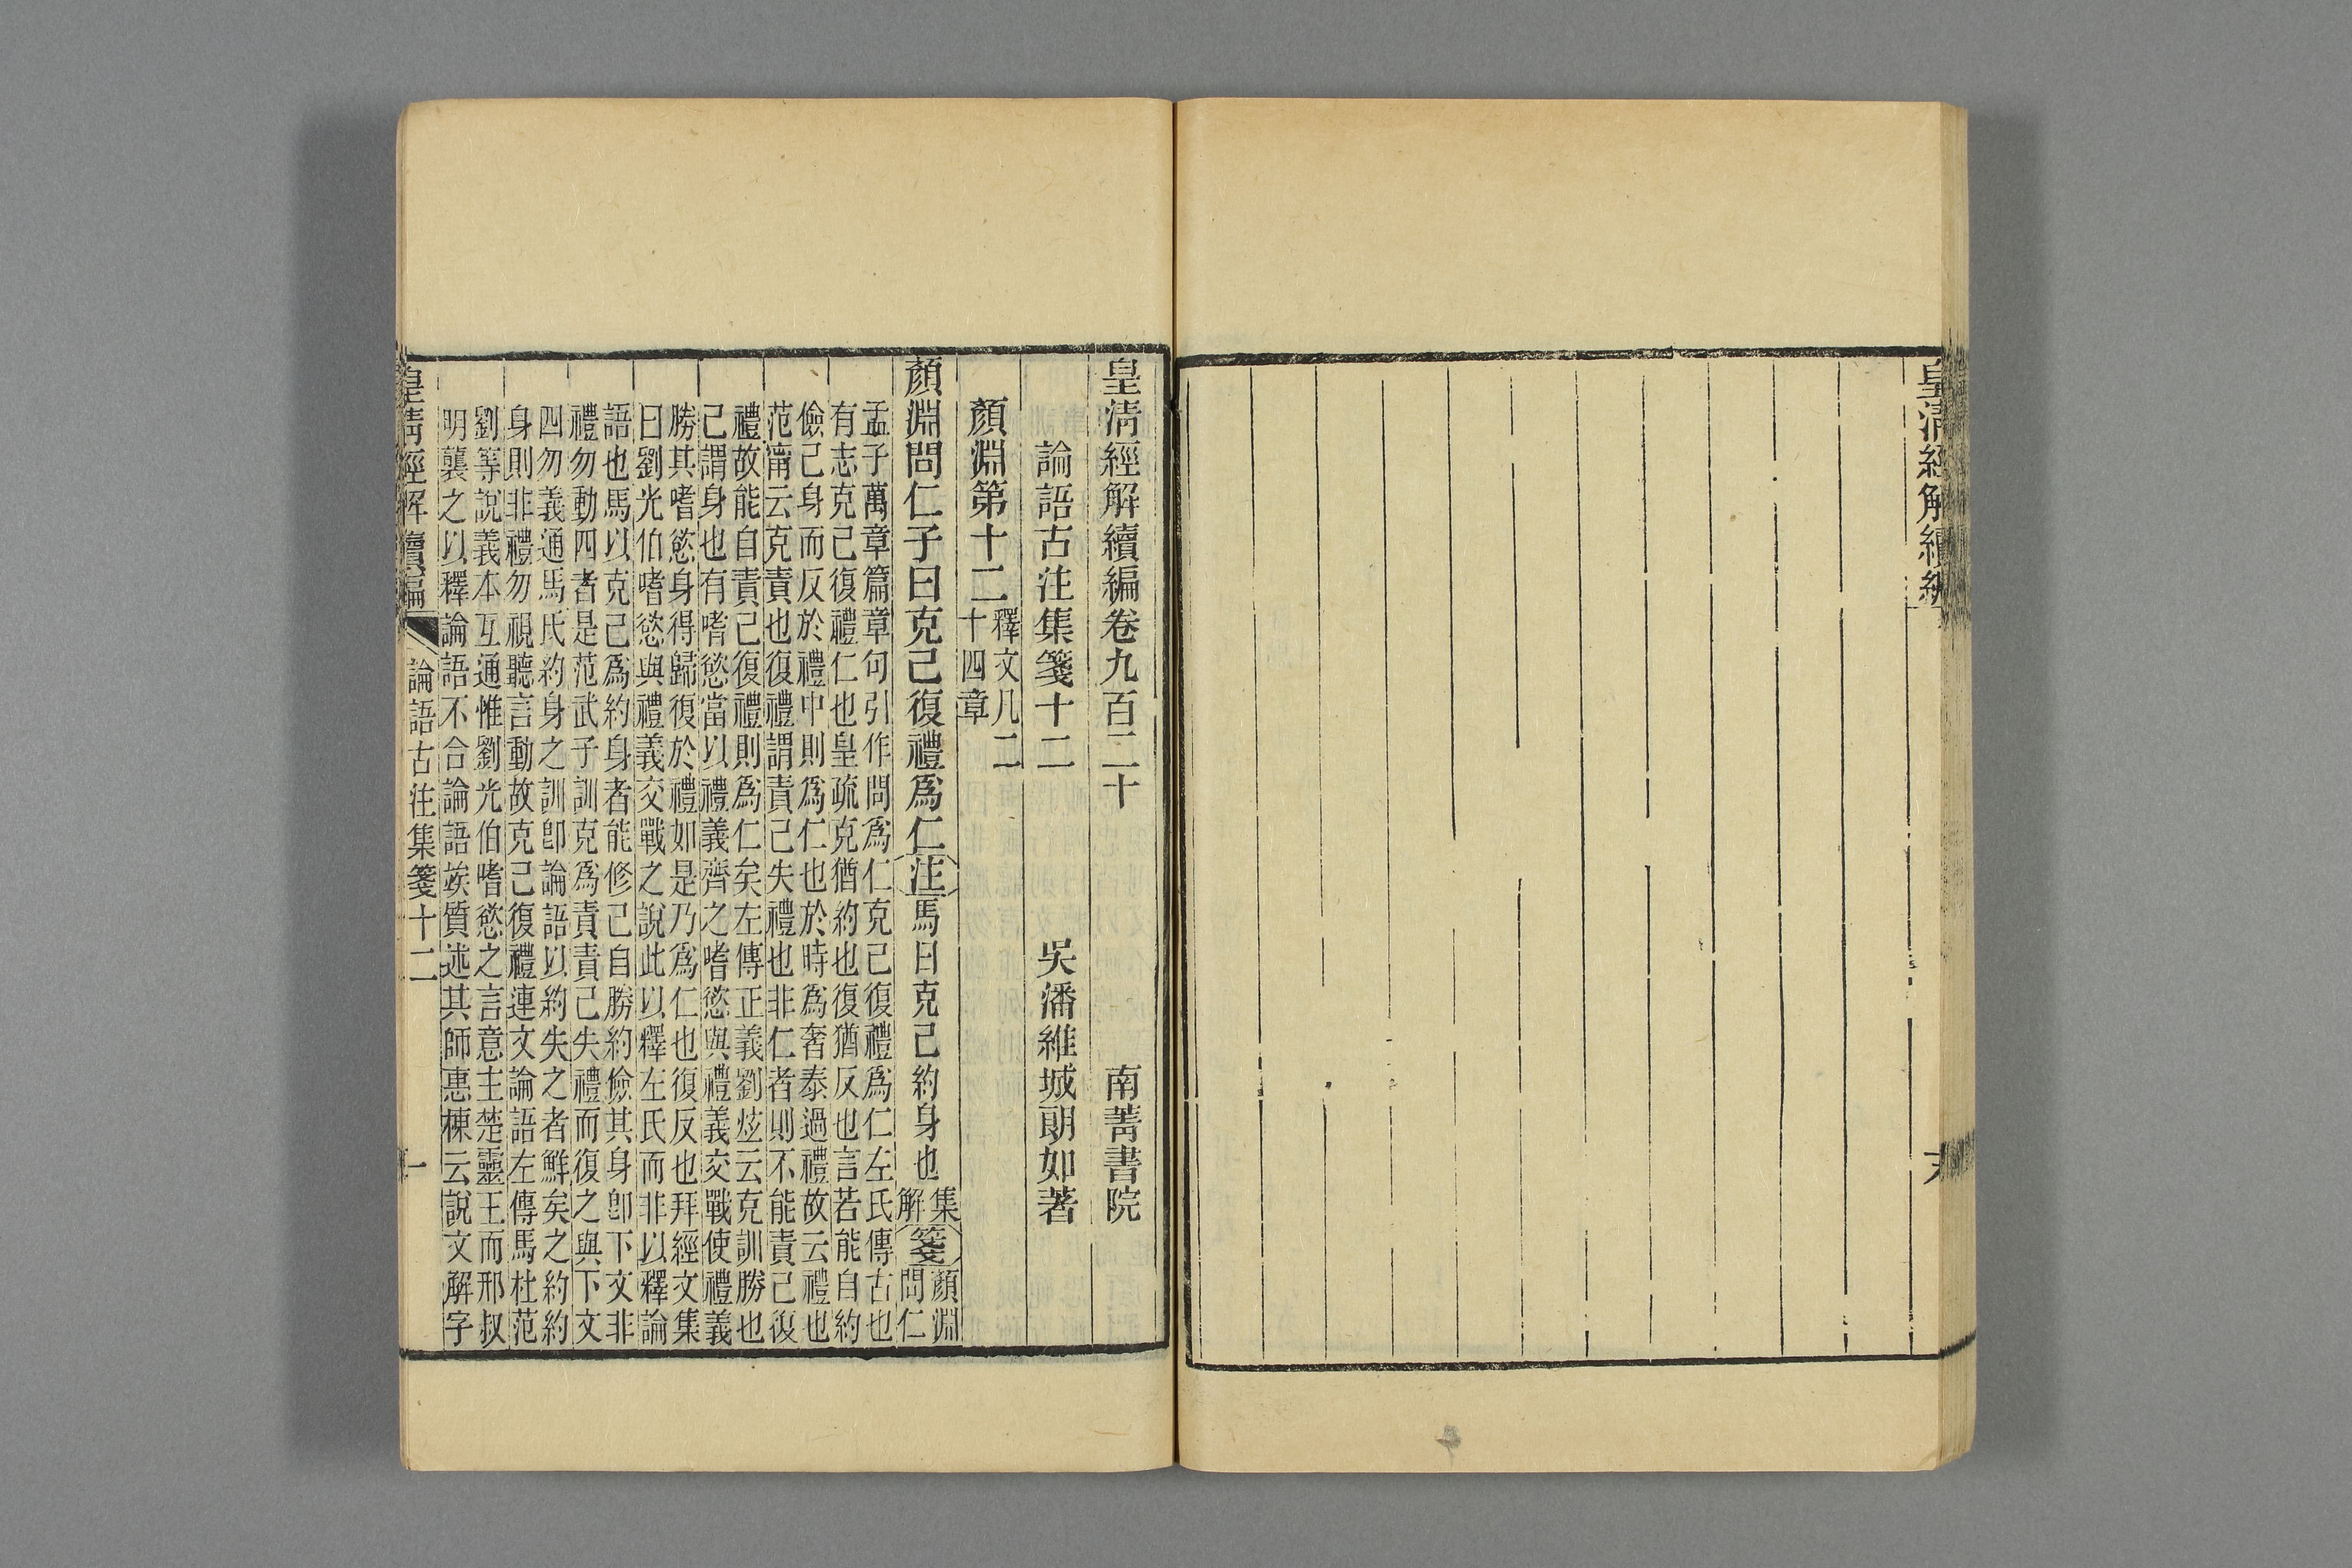 皇清經解續編
皇清經解續編卷九百二十　南菁書院
論語古注集箋十二　吳潘維城朗如著
顏淵第十二釋文凡二十四章
顏淵問仁子曰克己復禮爲仁注馬曰克己約身也集解箋顏淵問仁
孟子萬章篇章句引作問爲仁克己復禮爲仁左氏傳古也
有志克己復禮仁也皇疏克猶約也復猶反也言若能自約
儉己身而反於禮中則爲仁也於時爲奢泰過禮故云禮也
范甯云克責也復禮謂責己失禮也非仁者則不能責己復
禮故能自責己復禮則爲仁矣左傳正義劉炫云克訓勝也
己謂身也有嗜慾當以禮義齊之嗜慾與禮義交戰使禮義
勝其嗜慾身得歸復於禮如是乃爲仁也復反也拜經文集
曰劉光伯嗜慾與禮義交戰之說此以釋左氏而非以釋論
語也馬以克己爲約身者能修己自勝約儉其身卽下文非
禮勿動四者是范武子訓克爲責責己失禮而復之與下文
四勿義通馬氏約身之訓卽論語以約失之者鮮矣之約約
身則非禮勿視聽言動故克己復禮連文論語左傳馬杜范
劉等說義本互通惟劉光伯嗜慾之言意主楚靈王而邢叔
明襲之以釋論語不合論語竢質述其師惠棟云說文解字
皇清經解續編　論語古注集箋十二　一